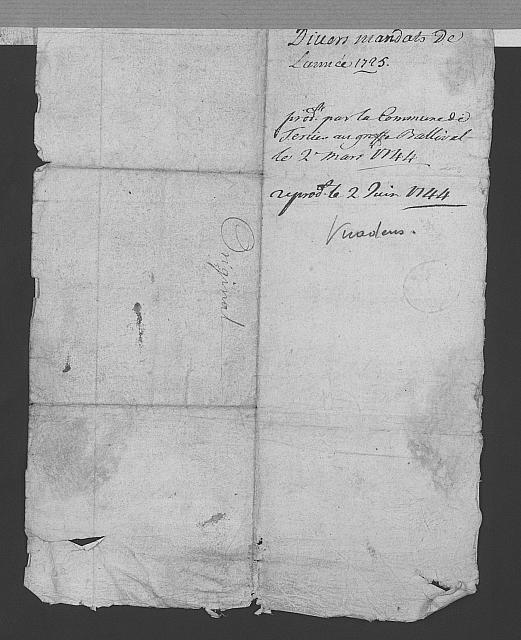 Divers mandats de
L'année 1725.
prod.^t par la Commune de
au greffe Ballival
le 2 mars 1744
reprod.^t le 2 Juin 1744
Vuadens.
Original